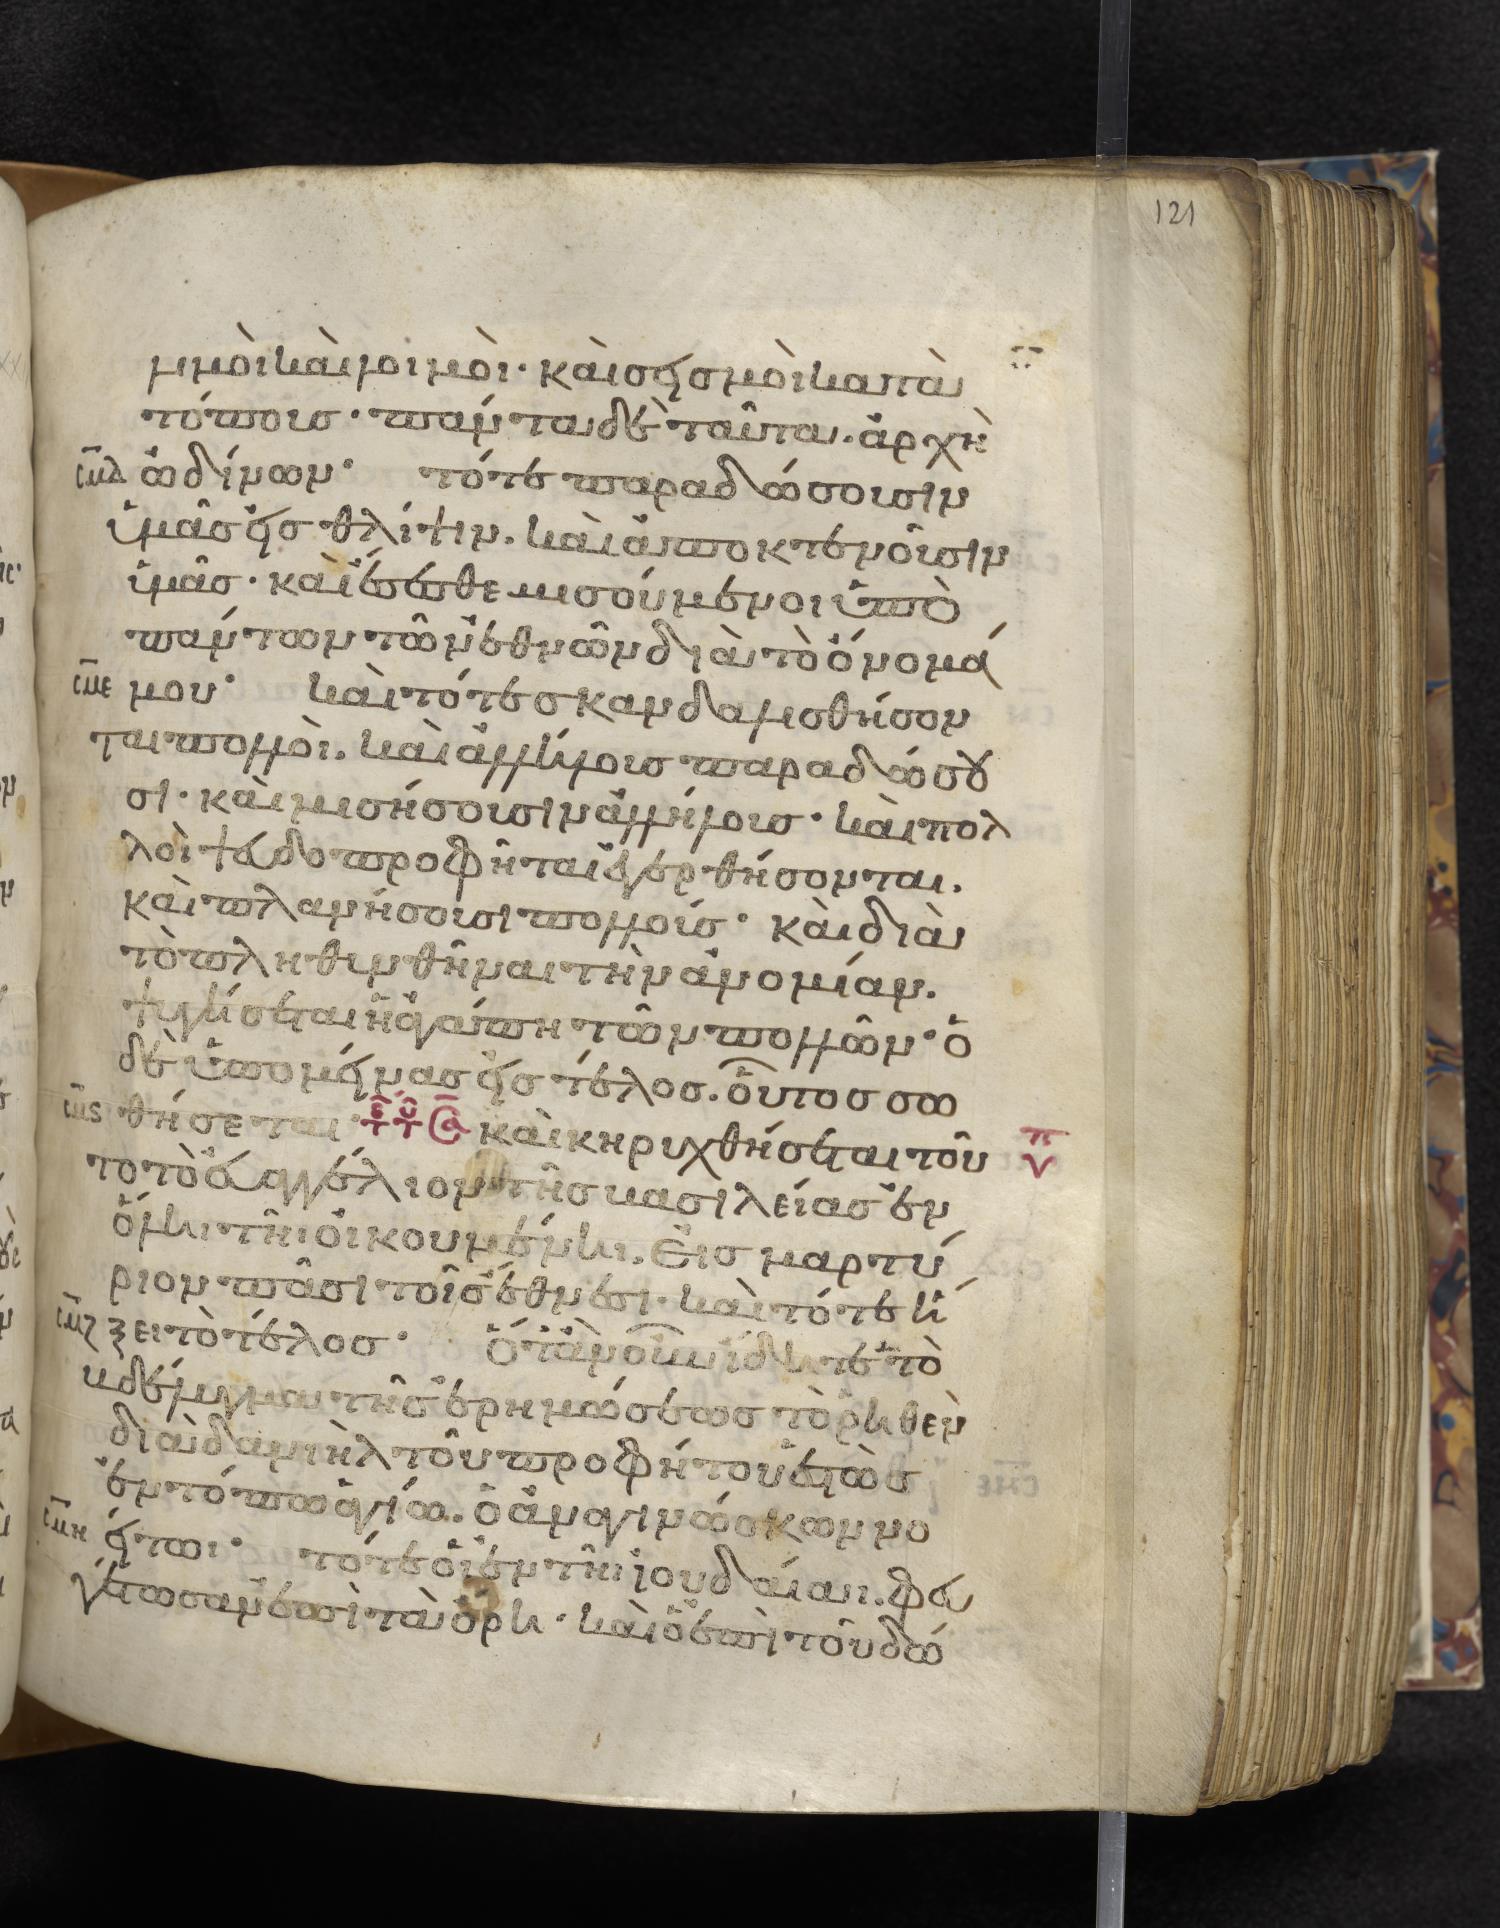 121
μμοὶ καὶ λοιμοὶ· καὶ σεισμοὶ κατὰ
τόπους· πάντα δὲ ταῦτα. ἀρχὴ
σμδ ὠδίνων· τότε παραδώσουσιν
ὑμᾶς εἰς θλίψιν. καὶ ἀποκτενοῦσιν
ὑμᾶς· καὶ ἔσεσθε μισούμενοι ὑπὸ
πάντων τῶν ἐθνῶν διὰ τὸ ὄνομά
σμε μου· καὶ τότε σκανδαλισθήσον
ται πολλοὶ. καὶ ἀλλήλους παραδώσου
σι· καὶ μισήσουσιν ἀλλήλους· καὶ πολ
λοὶ ψευδοπροφῆται ἐγερθήσονται.
καὶ πλανήσουσι πολλούς· καὶ διὰ
τὸ πληθυνθῆναι τὴν ἀνομίαν.
ψυγήσεται ἡ ἀγάπη τῶν πολλῶν· ὁ
δὲ ὑπομείνας εἰς τέλος. οὗτος σω
σμς θήσεται· καὶ κηρυχθήσεται τοῦ
το τὸ εὐαγγέλιον τῆς βασιλείας ἐν
ὅλη τῆι οἰκουμένηι. Εἰς μαρτύ
ριον πᾶσι τοῖς ἔθνεσι· καὶ τότε ἥ
σμζ ξει τὸ τέλος· Ὅταν οὖν ἴδητε τὸ
βδέλυγμα τῆς ἐρημώσεως τὸ ῥηθὲν
διὰ δανιὴλ τοῦ προφήτου ἑστὼς
ἐν τόπω ἁγίω. ὁ ἀναγινώσκων νο
σμη είτω· τότε οἱ ἐν τῆι ἰουδαίαι. φευ
γέτωσαν ἐπὶ τὰ ὄρη· καὶ ὁ ἐπὶ τοῦ δώ